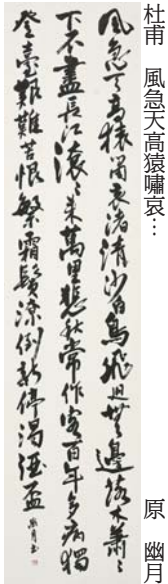 杜甫 風急天高猿嘯哀… 原 幽月
風急天高猿嘯哀渚清沙白鳥飛迴無邊落木蕭々
下不盡長江滾々来萬里悲秋常作客百年多病獨
登臺艱難苦恨繁霜鬢潦倒新停濁酒盃 幽月書